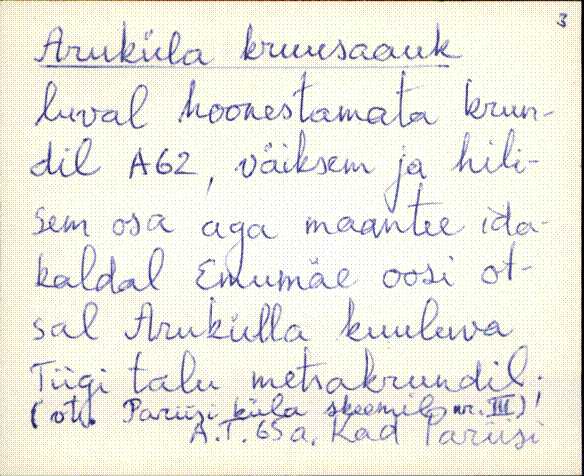 3
Aruküla kruusaauk
luval hoonestamata krun-
dil A62, väiksem ja hili-
sem osa aga maantee ida-
kaldal Emumäe oosi ot-
sal Arukülla kuuluva
Tiigi talu metsakrundil;
(vt. Pariisi küla skeemil nr. III)
A.T. 65 a. Kad Pariisi